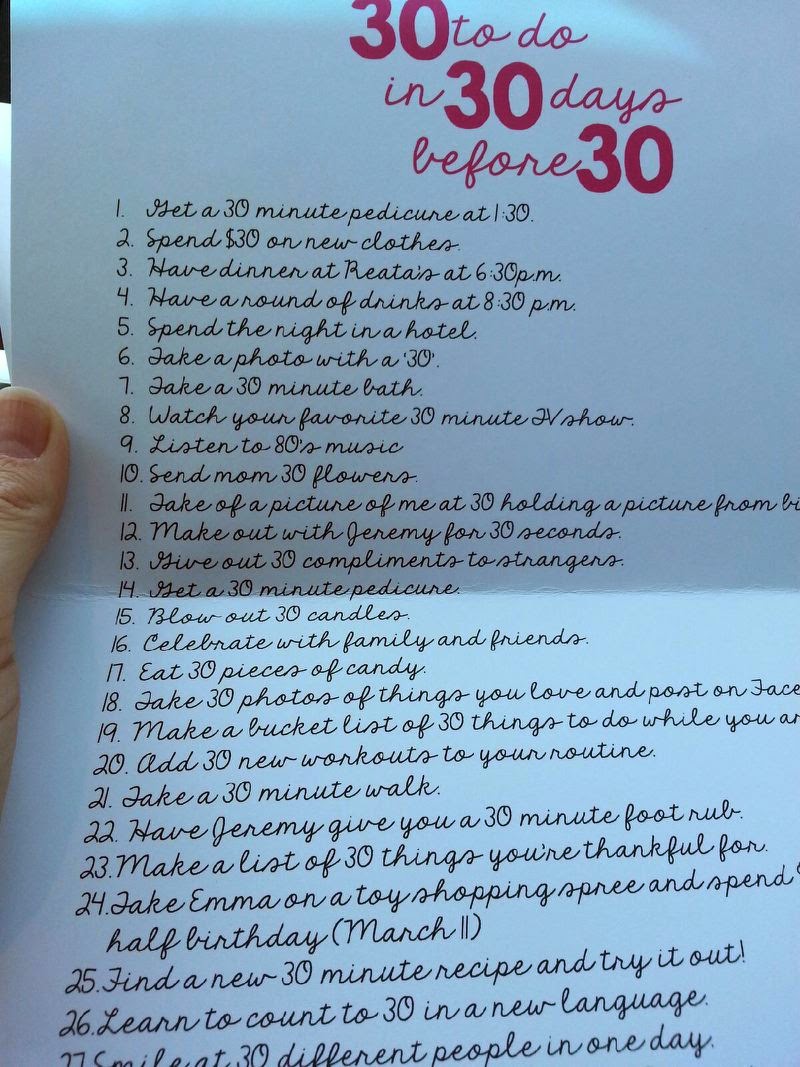 30 to do
in 30 days
before 30
1. Get a 30 minute pedicure at 1:30.
2. Spend $30 on new clothes.
3. Have dinner at Reata's at 6:30p.m.
4. Have a round of drinks at 8:30 p.m.
5. Spend the night in a hotel.
6. Take a photo with a '30'.
7. Take a 30 minute bath.
8. Watch your favorite 30 minute TV show.
9. Listen to 80's music
10. Send mom 30 flowers.
11. Take of a picture of me at 30 holding a picture from
12. Make out with Jeremy for 30 seconds.
13. Give out 30 compliments to strangers.
14. Get a 30 minute pedicure.
15. Blow out 30 candles.
16. Celebrate with family and friends.
17. Eat 30 pieces of candy.
18. Take 30 photos of things you love and post on Face
19. Make a bucket list of 30 things to do while you
20. Add 30 new workouts to your routine.
21. Take a 30 minute walk.
22. Have Jeremy give you a 30 minute foot rub.
23. Make a list of 30 things you're thankful for.
24. Take Emma on a toy shopping spree and spend
half birthday (March 11)
25. Find a new 30 minute recipe and try it out!
26. Learn to count to 30 in a new language.
27. Smile at 30 different people in one day.